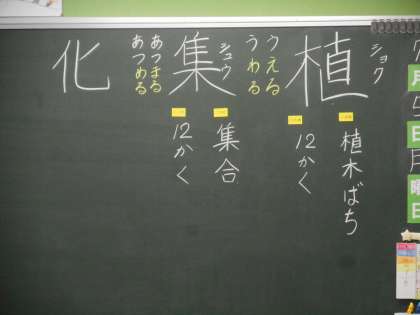 ショク
植
うえる
うわる
植木ばち
12かく
シュウ
集
あつまる
あつめる
集合
12かく
化
月
日
月
曜
日